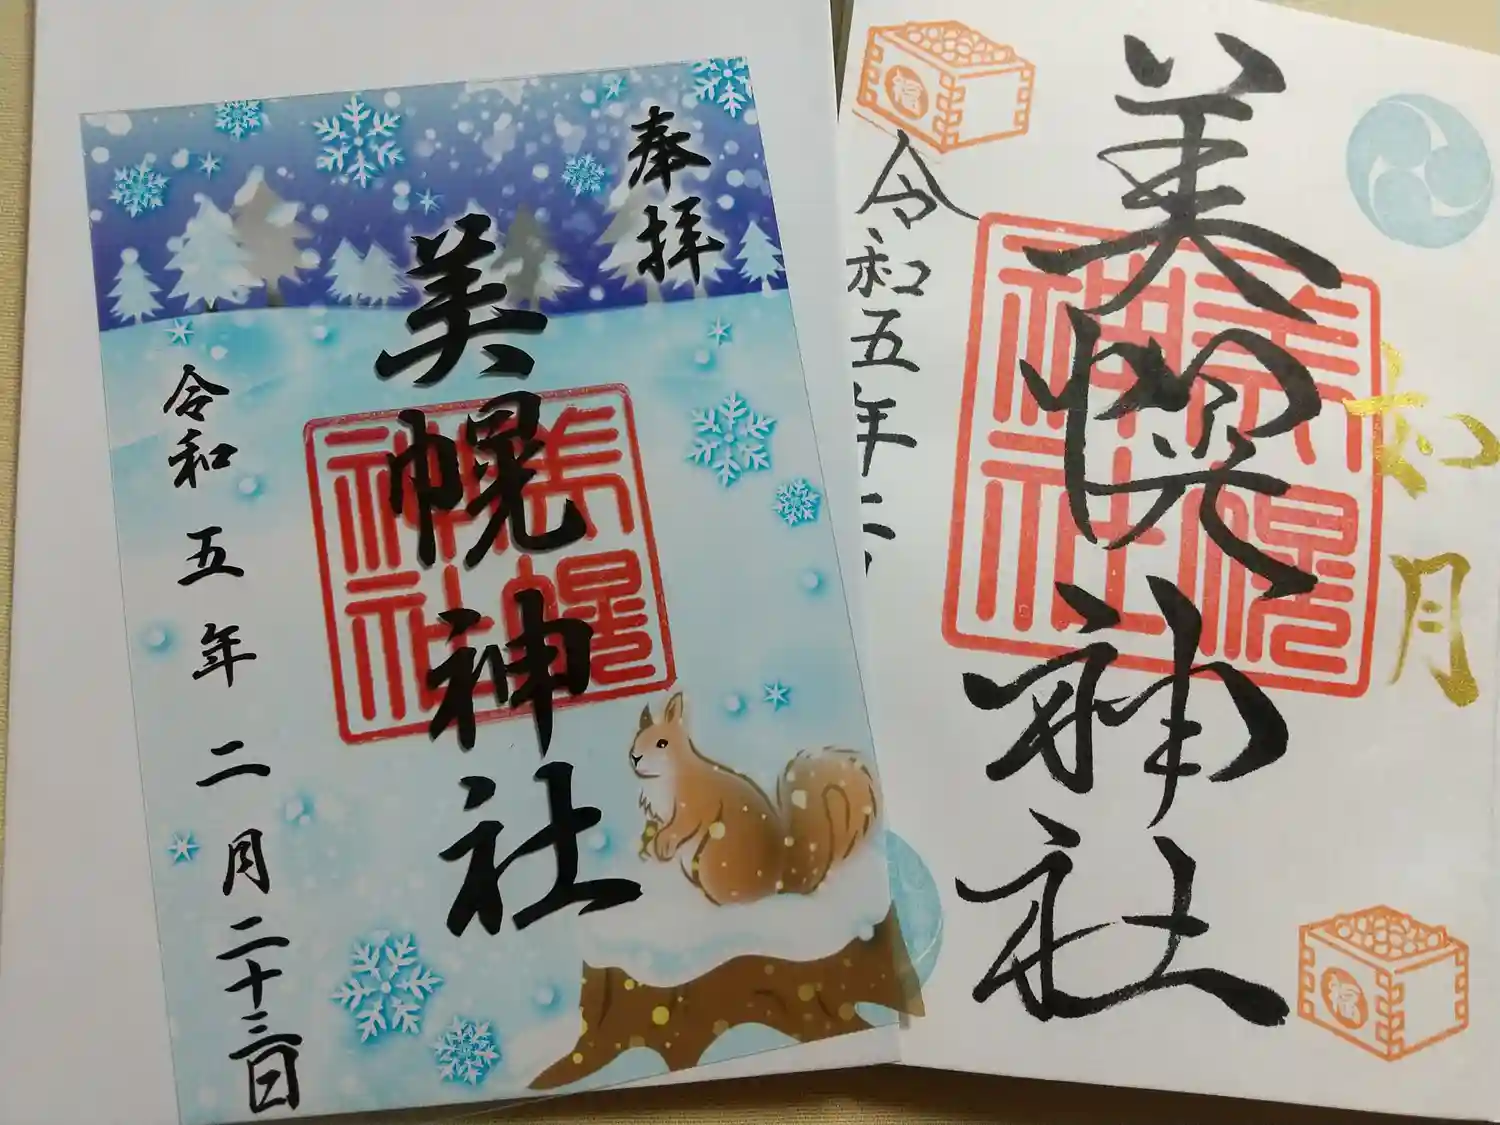 奉拝
美幌神社
美幌
神社
令和五年二月二十三日
福
如月
美幌神社
美幌
神社
令和五年二
福